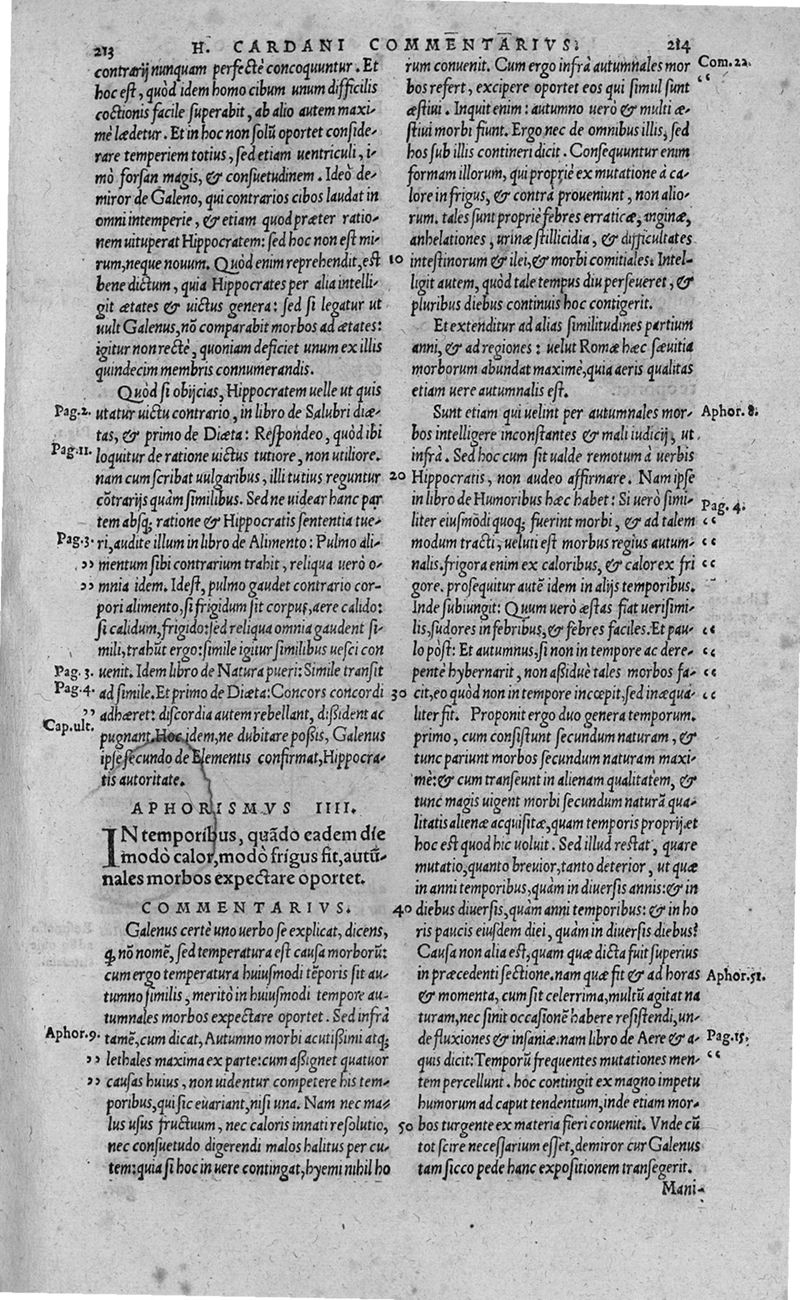 213 H. CARDANI COMMENTARIVS. 214
contrarij nunquam perfectè concoquuntur. Et
hoc est, quòd idem homo cibum unum difficilis
coctionis facile superabit, ab alio autem maxi-
mè lædetur. Et in hoc non solũ oportet conside-
rare temperiem totius, sed etiam uentriculi, i-
mò forsan magis, & consuetudinem. Ideò de-
miror de Galeno, qui contrarios cibos laudat in
omni intemperie, & etiam quod præter ratio-
nem uituperat Hippocratem: sed hoc non est mi-
rum, neque nouum. Quòd enim reprehendit, est
bene dictum, quia Hippocrates per alia intelli-
git ætates & uictus genera: sed si legatur ut
uult Galenus, nõ comparabit morbos ad ætates:
igitur non rectè, quoniam deficiet unum ex illis
quindecim membris connumerandis.
Quòd si obijcias, Hippocratem uelle ut quis
Pag.2. utatur uictu contrario, in libro de Salubri diæ-
tas, & primo de Diæta: Respondeo, quòd ibi
Pag.11. loquitur de ratione uictus tutiore, non utiliore.
nam cum scribat uulgaribus, illi tutius reguntur
cõtrarijs quàm similibus. Sed ne uidear hanc par
tem absq; ratione & Hippocratis sententia tue-
Pag.3. ri, audite illum in libro de Alimento: Pulmo ali-
,, mentum sibi contrarium trahit, reliqua uerò o-
,, mnia idem. Idest, pulmo gaudet contrario cor-
pori alimento, si frigidum sit corpus, aere calido:
si calidum, frigido: sed reliqua omnia gaudent si-
mili, trahũt ergo: simile igitur similibus uesci con
Pag. 3. uenit. Idem libro de Natura pueri: Simile transit
Pag.4. ad simile. Et primo de Diæta: Concors concordi
,, adhæret: discordia autem rebellant, dißident ac
Cap.ult. pugnant. Hoc idem, ne dubitare poßis, Galenus
ipse secundo de Elementis confirmat, Hippocra-
tis autoritate.
APHORISMVS IIII.
IN temporibus, quãdo eadem die
modò calor, modò frigus fit, autũ-
nales morbos expectare oportet.
COMMENTARIVS.
Galenus certè uno uerbo se explicat, dicens,
q, nõ nomẽ, sed temperatura est causa morborũ:
cum ergo temperatura huiusmodi tẽporis sit au-
tumno similis, meritò in huiusmodi tempore au-
tumnales morbos expectare oportet. Sed infrà
Aphor.9. tamẽ, cum dicat, Autumno morbi acutißimi atq;
,, lethales maxima ex parte: cum aßignet quatuor
,, causas huius, non uidentur competere his tem-
poribus, qui sic euariant, nisi una. Nam nec ma-
lus usus fructuum, nec caloris innati resolutio,
nec consuetudo digerendi malos halitus per cu-
tem: quia si hoc in uere contingat, hyemi nihil ho
rum conuenit. Cum ergo infrà autumnales mor Com.22.
bos refert, excipere oportet eos qui simul sunt “
æstiui. Inquit enim: autumno uerò & multi æ-
stiui morbi fiunt. Ergo nec de omnibus illis, sed
hos sub illis contineri dicit. Consequuntur enim
formam illorum, qui propriè ex mutatione à ca-
lore in frigus, & contrà proueniunt, non alio-
rum. tales sunt propriè febres erraticæ, anginæ,
anhelationes, urinæ stillicidia, & difficultates
10 intestinorum & ilei, & morbi comitiales. Intel-
ligit autem, quòd tale tempus diu perseueret, &
pluribus diebus continuis hoc contigerit.
Et extenditur ad alias similitudines partium
anni, & ad regiones: uelut Romæ hæc sæuitia
morborum abundat maximè, quia aeris qualitas
etiam uere autumnalis est.
Sunt etiam qui uelint per autumnales mor- Aphor. 8.
bos intelligere inconstantes & mali iudicij, ut
infrà. Sed hoc cum sit ualde remotum à uerbis
20 Hippocratis, non audeo affirmare. Nam ipse
in libro de Humoribus hæc habet: Si uerò simi- Pag. 4.
liter eiusmõdi quoq; fuerint morbi, & ad talem “
modum tracti, ueluti est morbus regius autum- “
nalis. frigora enim ex caloribus, & calor ex fri “
gore. prosequitur autẽ idem in alijs temporibus.
Inde subiungit: Quum uerò æstas fiat uerisimi-
lis, sudores in febribus, & febres faciles. Et pau- “
lo pòst: Et autumnus, si non in tempore ac dere- “
pentè hybernarit, non aßiduè tales morbos fa- “
30 cit, eo quòd non in tempore incœpit, sed inæqua- “
liter fit. Proponit ergo duo genera temporum.
primo, cum consistunt secundum naturam, &
tunc pariunt morbos secundum naturam maxi-
mè: & cum transeunt in alienam qualitatem, &
tunc magis uigent morbi secundum naturã qua-
litatis alienæ acquisitæ, quam temporis proprij. et
hoc est quod hic uoluit. Sed illud restat, quare
mutatio, quanto breuior, tanto deterior, ut quæ
in anni temporibus, quàm in diuersis annis: & in
40 diebus diuersis, quàm anni temporibus: & in ho
ris paucis eiusdem diei, quàm in diuersis diebus?
Causa non alia est, quam quæ dicta fuit superius
in præcedenti sectione. nam quæ fit & ad horas Aphor.51.
& momenta, cum sit celerrima, multũ agitat na
turam, nec sinit occasionẽ habere resistendi, un-
de fluxiones & insaniæ. nam libro de Aere & a- Pag.15.
quis dicit: Temporũ frequentes mutationes men- “
tem percellunt. hoc contingit ex magno impetu
humorum ad caput tendentium, inde etiam mor-
50 bos turgente ex materia fieri conuenit. Vnde cũ
tot scire necessarium esset, demiror cur Galenus
tam sicco pede hanc expositionem transegerit.
Mani-